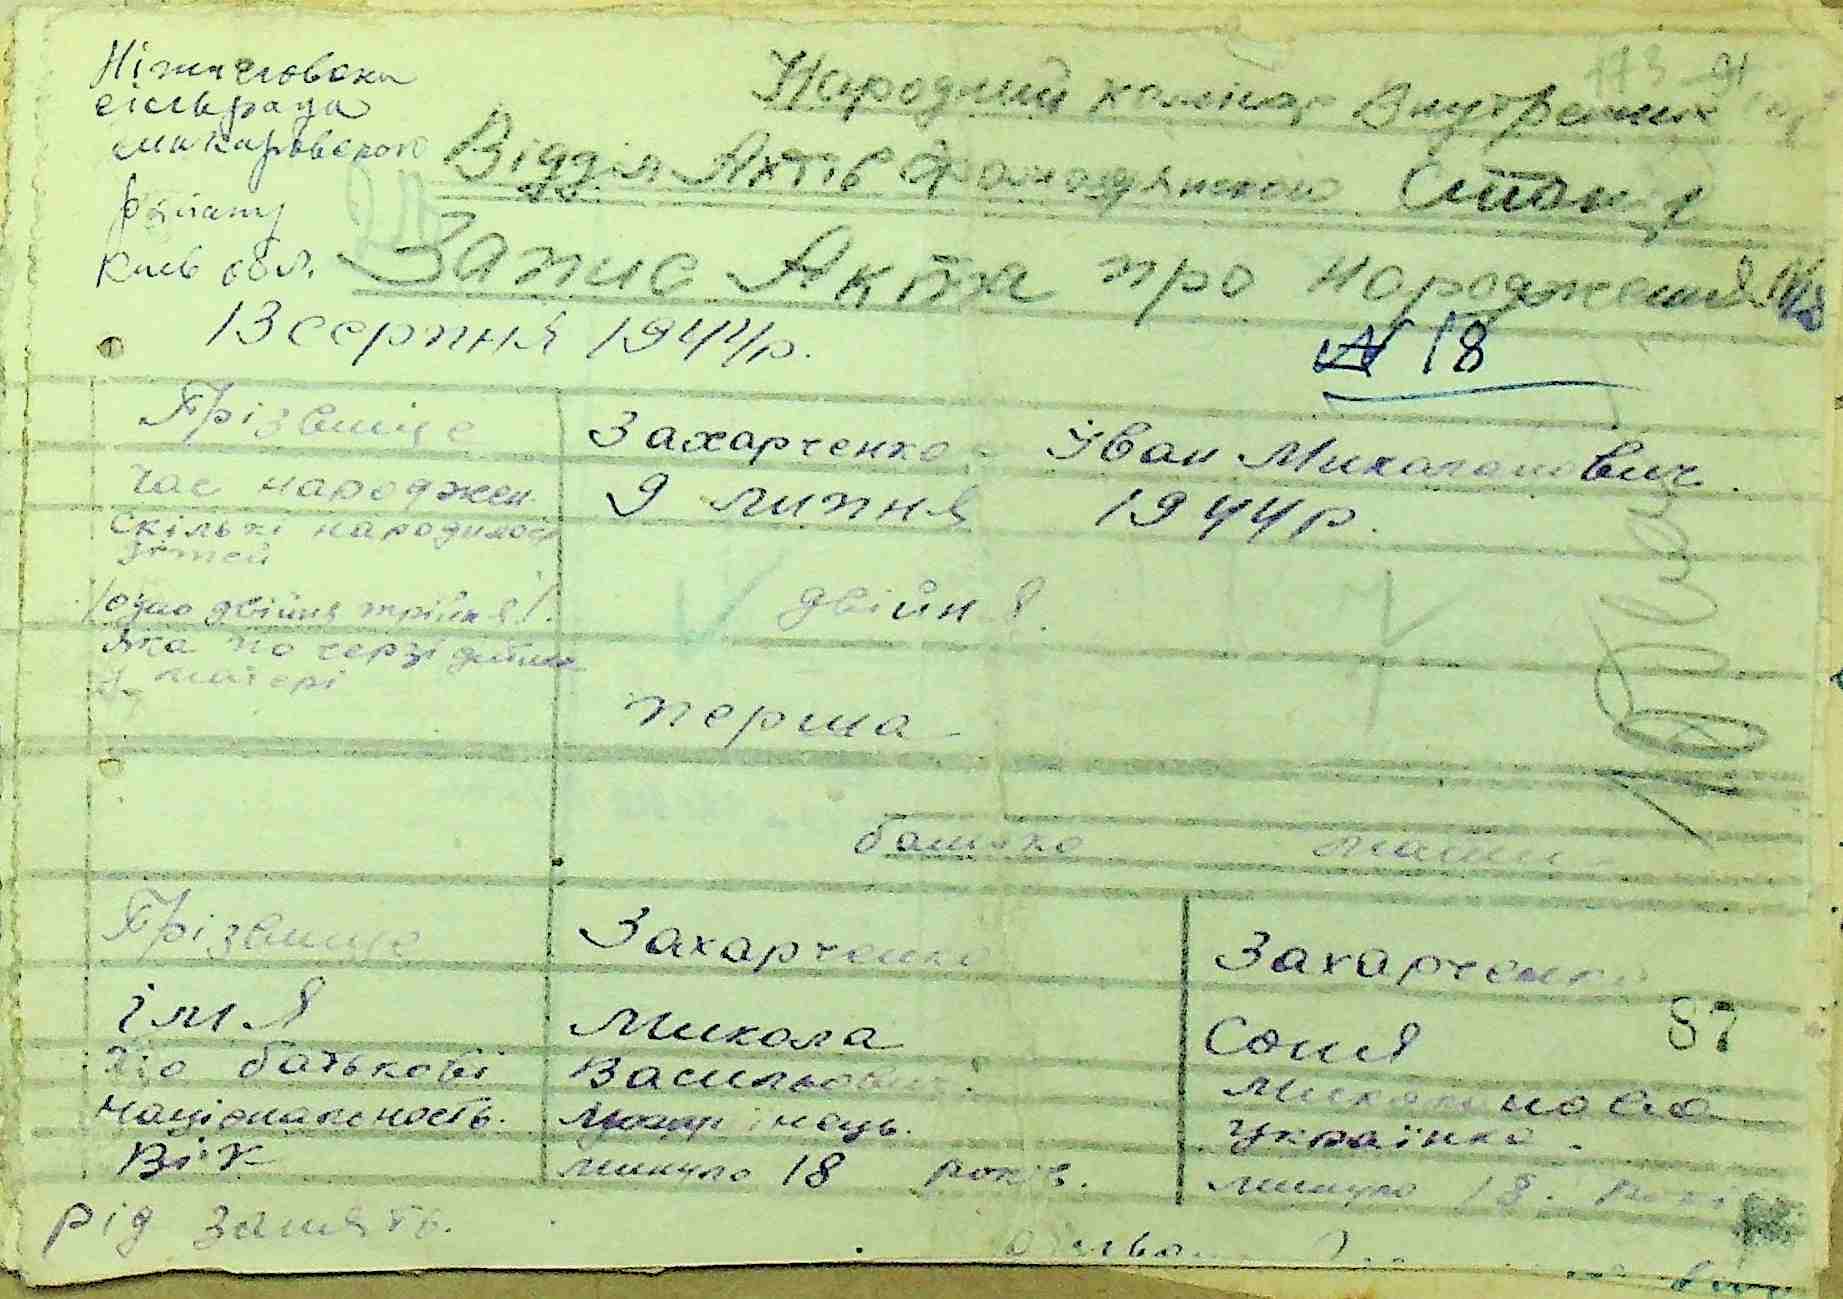 сільрада
макарівського
району
Київ обл.
Народний комісар Внутрешних
Відділ Актів Громодянського Стану
Запис Акта про народження
13 серпня 1944р.
№ 18
Прізвище Захарченко Іван Миколайович
Час народжен 9 липня 1944р.
Скількі народилось
дітей
/одно двійня трійня/. двійня.
Яка по черзі дитина
у матері
перша
батько мати
Прізвище Захарченко Захарченко
імя Микола Соня
по батькові Васильович. Миколаповна
національность. українець. Українка.
Вік минуло 18 років. минуло 18. рокі
87
рід занять.